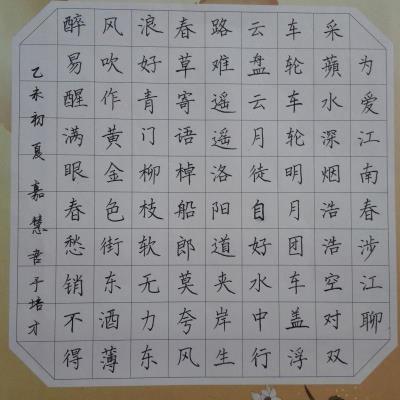 为爱江南春涉江聊
采蘋水深烟浩浩空对双
车轮车轮明月团车盖浮
云盘云月徒自好水中行
路难遥遥洛阳道夹岸生
春草寄语棹船郎莫夸风
浪好青门柳枝软无力东
风吹作黄金色街东酒薄
醉易醒满眼春愁销不得
乙未初夏嘉慧書于培才